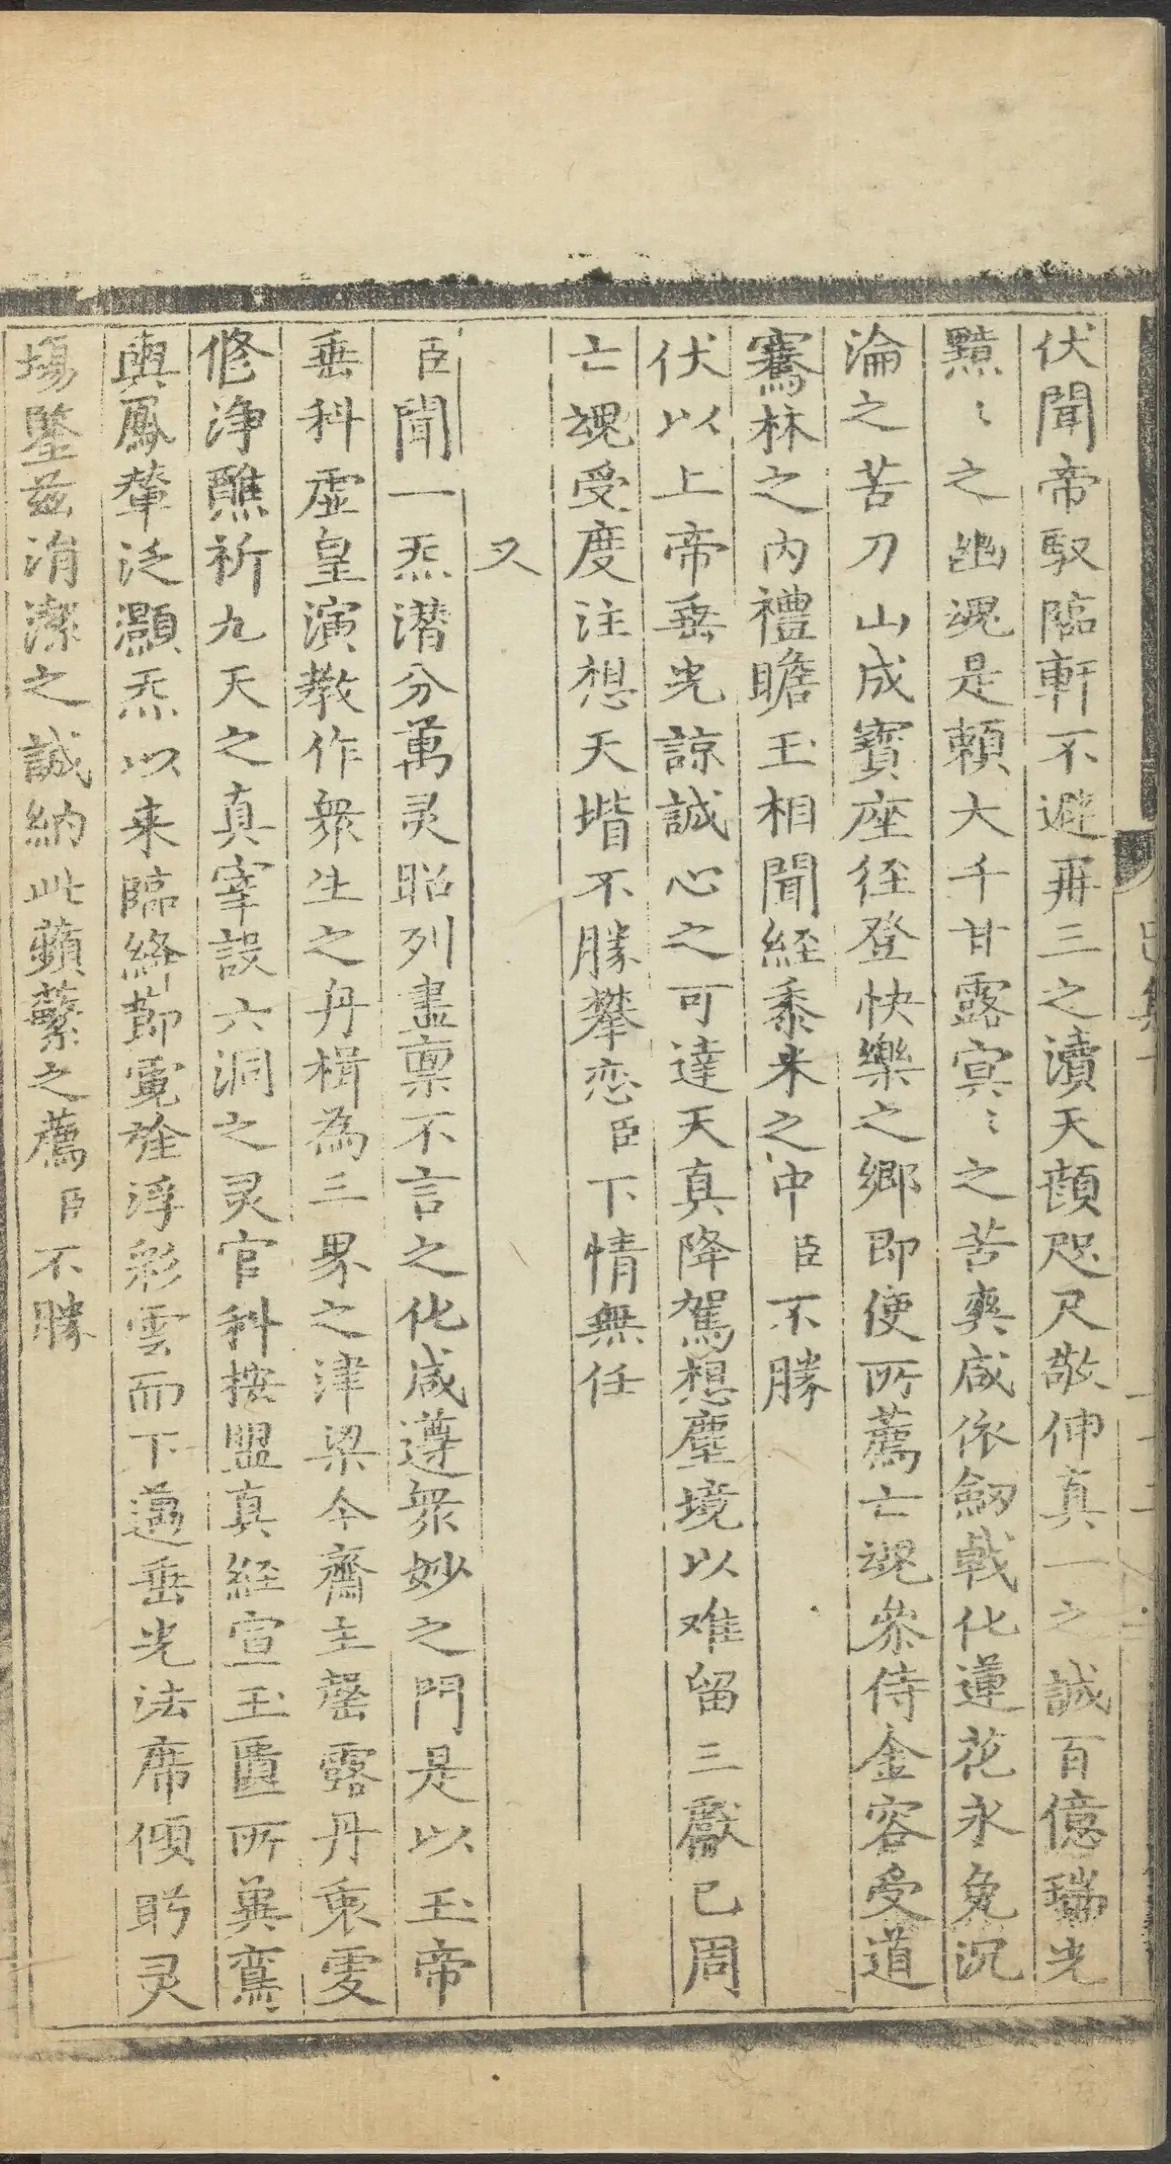 伏聞帝馭臨軒不避再三之瀆天顔咫尺敬伸真一之誠百億瑞光
黯〻之幽魂是賴大千甘露㝠〻之苦爽咸依劒戟化蓮花永免沉
淪之苦刀山成寳座徑登快樂之鄉即便所薦亡魂叅侍金容受道
騫林之內禮瞻玉相聞経黍米之中臣不勝
伏以上帝垂光諒誠心之可達天真降駕想塵境以难留三獻已周
亡魂受度注想天堦不勝攀恋臣下情無任
又
臣聞一炁潜分萬灵昭列盡禀不言之化咸遵衆妙之門是以玉帝
垂科虛皇演教作衆生之丹楫為三界之津梁今齋主罄露丹衷䖍
修浄醮祈九天之真宰設六洞之灵官科按盟真経宣玉匱所兾鸞
輿鳳輦泛灝炁以来臨絳莭霓旌浮彩雲而下邁垂光法席傾聆灵
塲鑒兹涓潔之誠納此蘋蘩之薦臣不勝